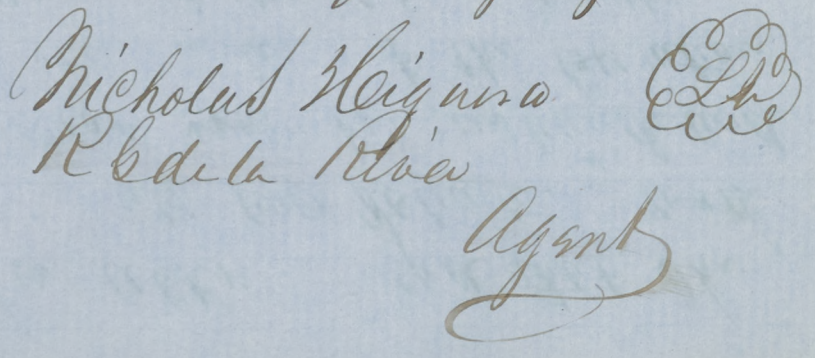 Nicholas Higuera LS
R G de la Riva
Agent